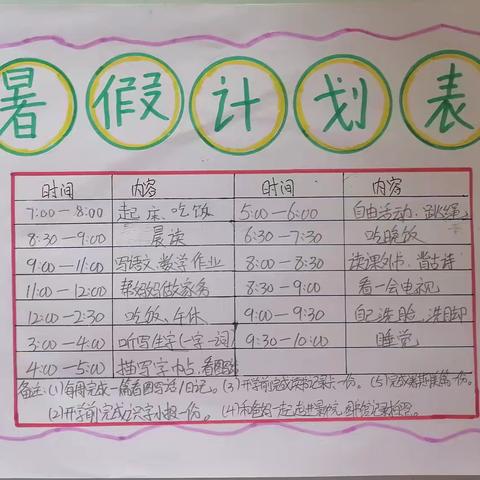 暑假计划表
时间 内容 时间 内容
7:00—8:00 起床、吃饭 5:00—6:00 自由活动、跳绳
8:30—9:00 晨读 6:30—7:30 吃晚饭
9:00—11:00 写语文、数学作业 8:00—8:30 读课外书、背古诗
11:00—12:00 帮妈妈做家务 8:30—9:00 看一会电视
12:00—2:30 吃饭、午休 9:00—9:30 自己洗脸、洗脚
3:00—4:00 听写生字(一字一词) 9:30—10:00 睡觉
4:00—5:00 描写字帖、看图
备注:(1)每周完成一篇看图写话/日记。(3)开学前完成 一份。(5)完成 一份。
(2)开学前完成识字小报一份。(4)和爸妈一起走进